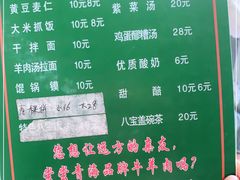 黄豆麦仁 10元8元 紫菜汤 20元
大米抓饭 10元8元
鸡蛋醪糟汤 28元
干拌面 10元
羊肉汤拉面 10元 优质酸奶 6元
馄锅馍 10元 甜醅 6元
八宝盖碗茶 20元
您想让远方的亲友，
尝尝青海品牌牛羊肉吗？